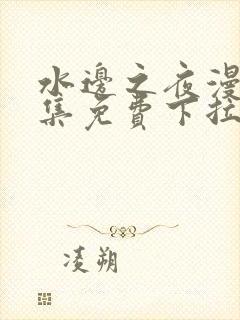 水邊之夜漫
集免費下拉
凌朔